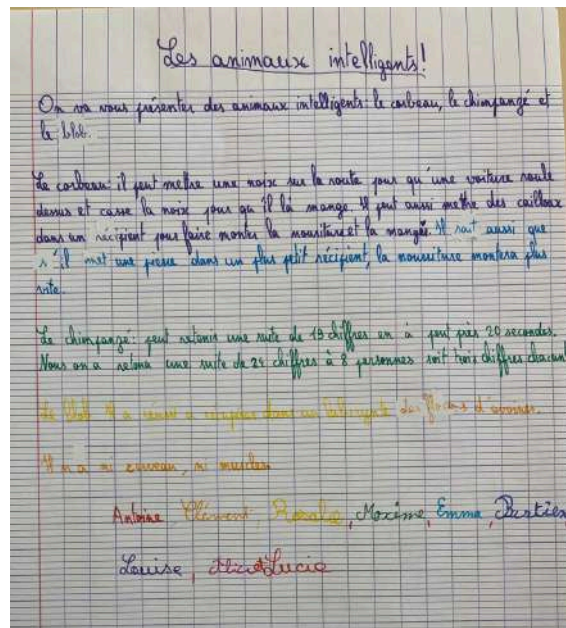 Les animaux intelligents!
On va vous présenter des animaux intelligents: le corbeau, le chimpanzé et
le blob.
Le corbeau: il peut mettre une noix sur la route pour qu'une voiture roule
dessus et casse la noix pour qu'il la mange. Il peut aussi mettre des cailloux
dans un récipient pour faire monter la nourriture et la mangée. Il sait aussi que
s'il met une pierre dans un plus petit récipient, la nourriture montera plus
vite.
Le chimpanzé: peut retenir une suite de 19 chiffres en à peut près 20 secondes.
Nous on a retenu une suite de 24 chiffres à 8 personnes soit trois chiffres chacun
Le blob Il a réussi a récupérer dans un labyrinthe des flocons d'avoines.
Il n'a ni cerveau, ni muscles
Antoine Clément, Rosalie, Maxime, Emma, Bastien
Louise, Alice et Lucie